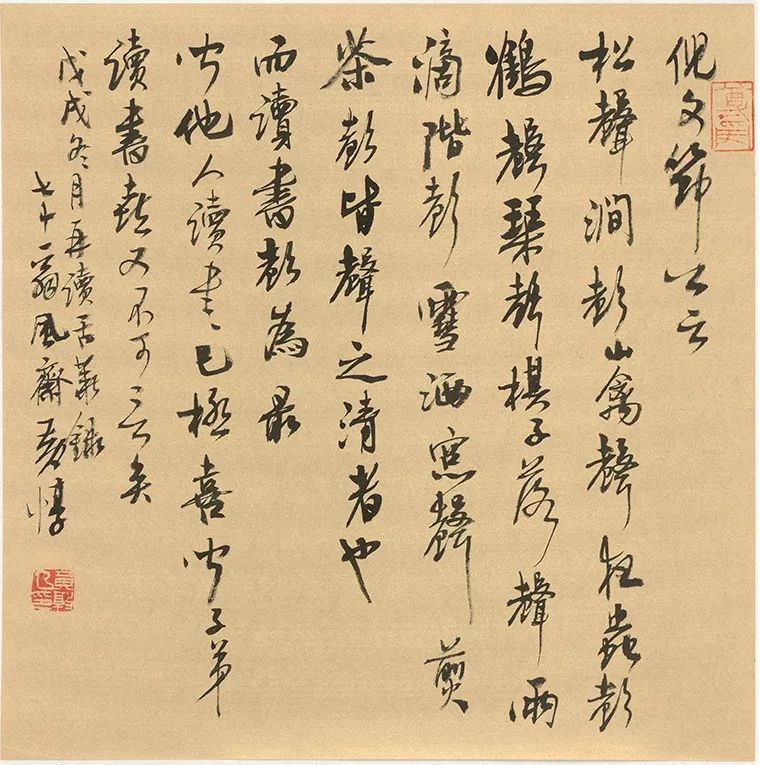 倪文節公云
松聲澗聲山禽聲夜蟲聲
鶴聲琴聲棋子落聲雨
滴階聲雪洒窓聲煎
茶聲皆聲之清者也
而讀書聲為最
聞他人讀書已極喜聞子弟
讀書喜又不可言矣
戊戌冬月再讀舌華錄
七十一翁風齋黃惇